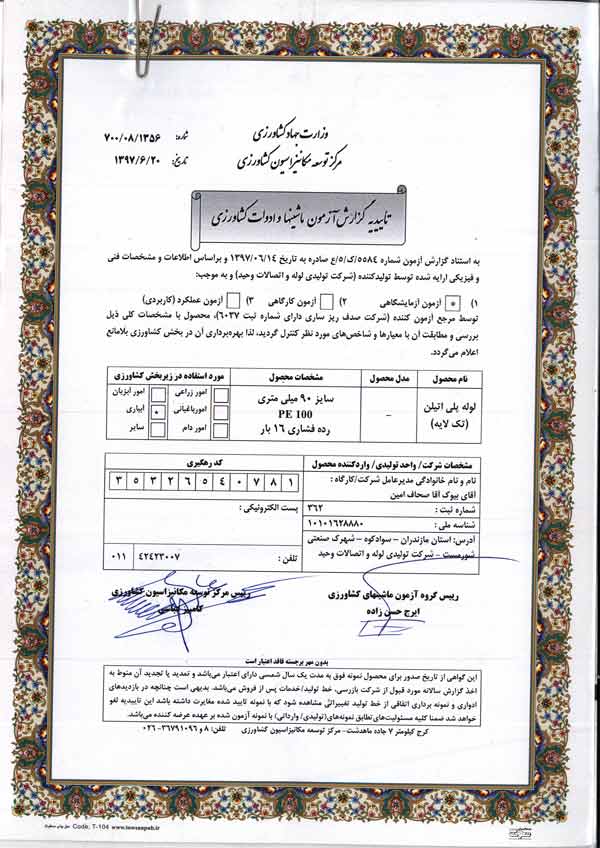 وزارت جهاد کشاورزی
مرکز توسعه مکانیزاسیون کشاورزی
شماره: ۷۰۰/۰۸/۱۳۵۶
تاریخ: ۱۳۹۷/۶/۲۰
تاییدیه گزارش آزمون ماشینها و ادوات کشاورزی
به استناد گزارش آزمون شماره ۵۵۸۴/ک/۵/ع صادره به تاریخ ۱۳۹۷/۰۶/۱۴ و براساس اطلاعات و مشخصات فنی
و فیزیکی ارایه شده توسط تولیدکننده (شرکت تولیدی لوله و اتصالات وحید) و به موجب:
۱) آزمون آزمایشگاهی * ۲) آزمون کارگاهی ۳) آزمون عملکرد (کاربردی)
توسط مرجع آزمون کننده (شرکت صدف ریز ساری دارای شماره ثبت ۶۰۳۷)، محصول با مشخصات کلی ذیل
بررسی و مطابقت آن با معیارها و شاخص‌های مورد نظر کنترل گردید، لذا بهره‌برداری آن در بخش کشاورزی بلامانع
اعلام می‌گردد.
نام محصول مدل محصول مشخصات محصول مورد استفاده در زیربخش کشاورزی
لوله پلی اتیلن
(تک لایه)
–
سایز ۹۰ میلی متری
PE 100
رده فشاری ۱۶ بار
امور زراعی امور آبزیان
امورباغبانی آبیاری *
امور دام سایر
مشخصات شرکت/ واحد تولیدی/ واردکننده محصول
کد رهگیری
نام و نام خانوادگی مدیرعامل شرکت/کارگاه :
آقای بیوک آقا صحاف امین
۳ ۵ ۳ ۲ ۶ ۵ ۴ ۰ ۷ ۸ ۱
شماره ثبت : ۳۶۲
پست الکترونیکی :
شناسه ملی : ۱۰۱۰۱۶۲۸۸۸۰
آدرس: استان مازندران – سوادکوه – شهرک صنعتی
شورمست – شرکت تولیدی لوله و اتصالات وحید
تلفن : ۴۲۴۲۳۰۰۷ ۰۱۱
رییس گروه آزمون ماشینهای کشاورزی
ایرج حسن زاده
رییس مرکز توسعه مکانیزاسیون کشاورزی
کامبیز عباسی
بدون مهر برجسته فاقد اعتبار است
این گواهی از تاریخ صدور برای محصول نمونه فوق به مدت یک سال شمسی دارای اعتبار می‌باشد و تمدید یا تجدید آن منوط به
اخذ گزارش سالانه مورد قبول از شرکت بازرسی، خط تولید/خدمات پس از فروش می‌باشد. بدیهی است چنانچه در بازدیدهای
ادواری و نمونه برداری اتفاقی از خط تولید تغییراتی مشاهده شود که با نمونه تایید شده مغایرت داشته باشد این تاییدیه لغو
خواهد شد ضمنا کلیه مسئولیت‌های تطابق نمونه‌های (تولیدی/ وارداتی) با نمونه آزمون شده بر عهده عرضه کننده می‌باشد.
کرج کیلومتر ۷ جاده ماهدشت– مرکز توسعه مکانیزاسیون کشاورزی تلفن: ۸ و ۳۶۷۹۱۰۹۶–۰۲۶
Code: T-104